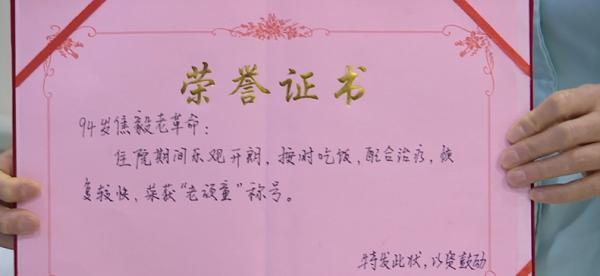 荣誉证书
94岁焦毅老革命:
住院期间乐观开朗，按时吃饭，配合治疗，恢
复较快，荣获“老顽童”称号。
特发此状，以资鼓励